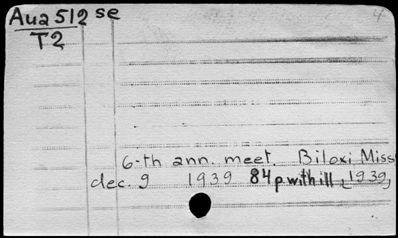 Aua512 se 4
T2
6-th ann. meet. Biloxi, Miss
dec. 9 1939 84p with ill [1939]